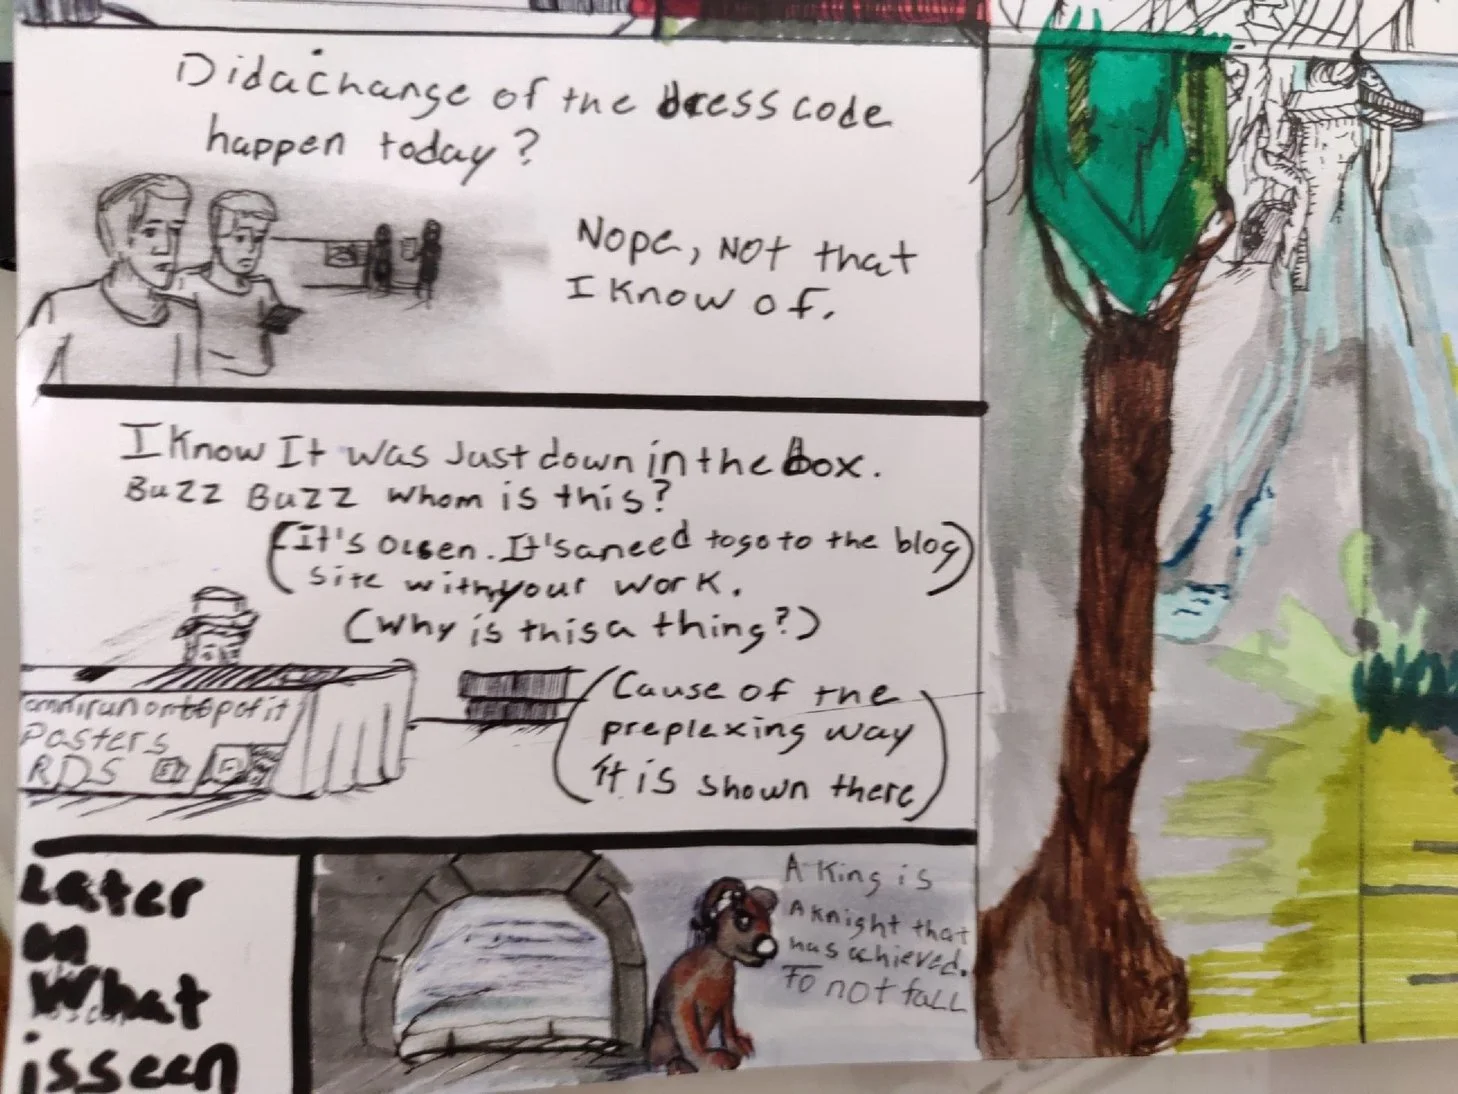 Did a change of the dress code
happen today?
Nope, Not that
I Know of.
I Know It was Just down in the box.
BUZZ BUZZ whom is this?
(It's Olsen. It's a need to go to the blog
site with your work.)
(Why is this a thing?)
(Cause of the
preplexing way
it is shown there)
Posters
RDS
Later
on
What
is seen
A King is
A Knight that
has achieved.
To not fall